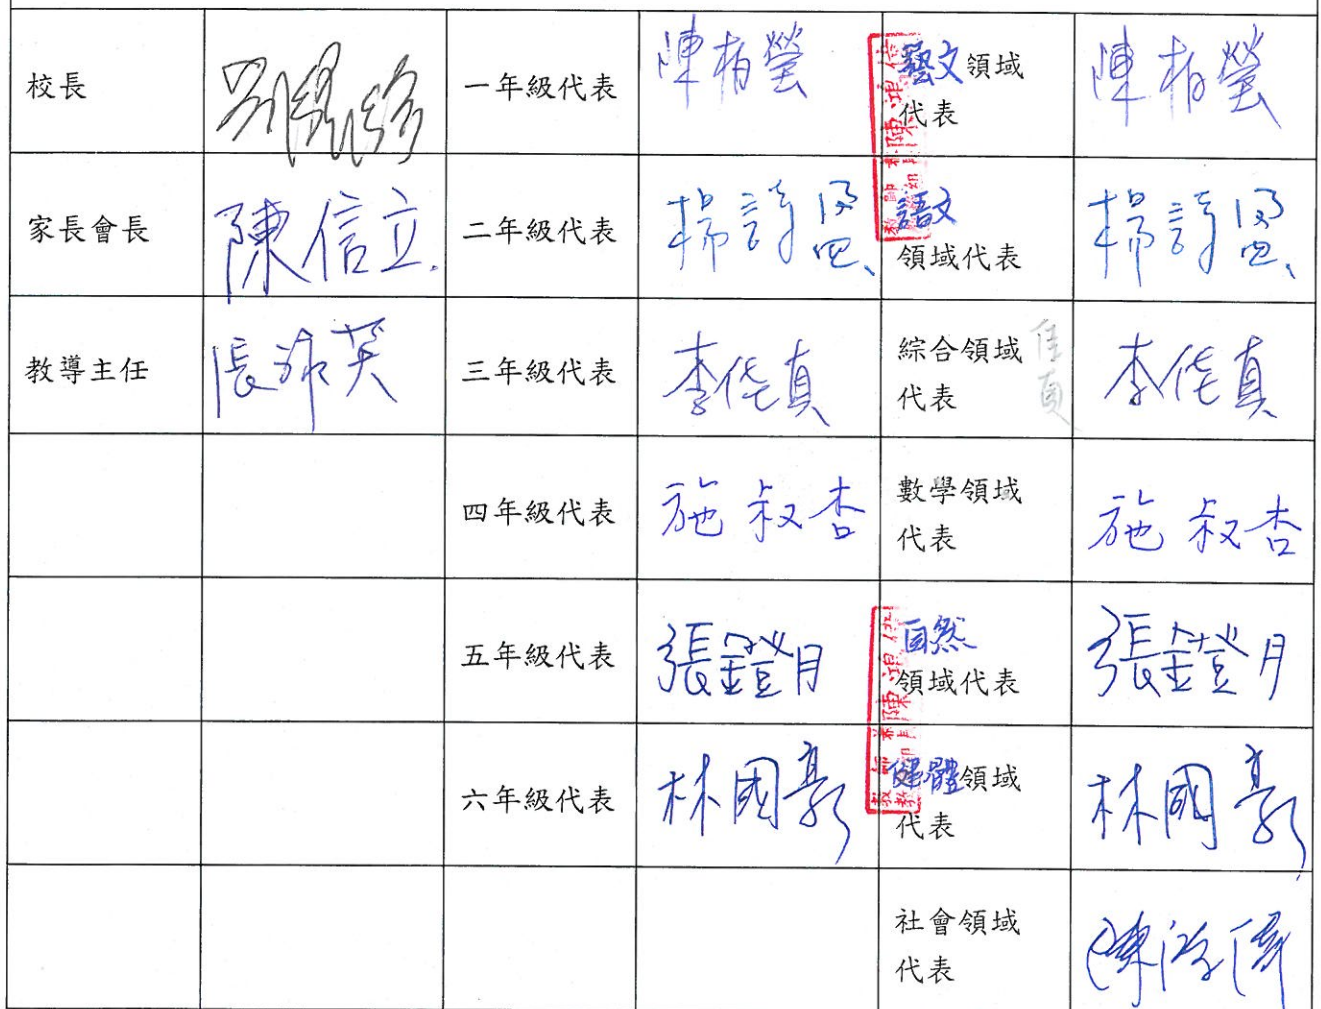 校長
一年級代表
陳柏螢
藝文領域
代表
陳柏螢
家長會長
陳信立.
二年級代表
語文
領域代表
教導主任
三年級代表
李佳真
綜合領域
代表
佳真
李佳真
四年級代表
施叔杏
數學領域
代表
施叔杏
五年級代表
張鐙月
自然
領域代表
張鐙月
六年級代表
林國豪
健體領域
代表
林國豪
社會領域
代表